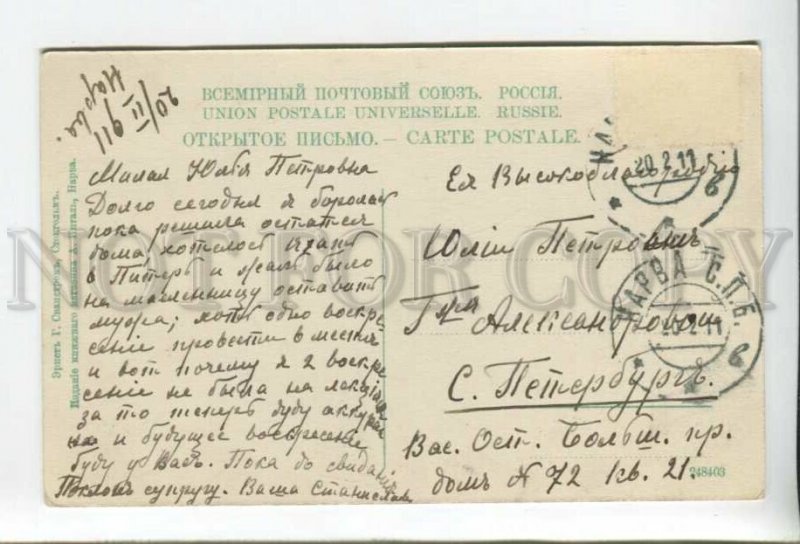 Нарва.
20/II 911
ВСЕМІРНЫЙ ПОЧТОВЫЙ СОЮЗЪ. РОССІЯ.
UNION POSTALE UNIVERSELLE. RUSSIE.
ОТКРЫТОЕ ПИСЬМО. — CARTE POSTALE.
Милая Юлія Петровна
Долго сегодня я боролась
пока рѣшила остаться
дома, хотелось ехать
в Питеръ и жаль было
на масленницу оставить
мужа; хоть одно воскре
сеніе провести в месте
и вот почему я 2 воскре
сеніе не была на лекціи
за то теперь буду аккурат
но и будущее воскресеніе
буду у Васъ. Пока до свиданія
Поклонъ супругу. Ваша Станислав
Ея Высокоблагородію
Юліи Петровнѣ
Г-жѣ Александрович
С. Петербургъ.
Вас. Ост. Больш. пр.
домъ № 72 кв. 21.
248403
20.2.11
НАРВА С.П.Б.
Эрнетъ Г. Сванстремъ, Стокгольмъ.
Изданіе книжнаго магазина А. Нарва.
NOT FOR COPY